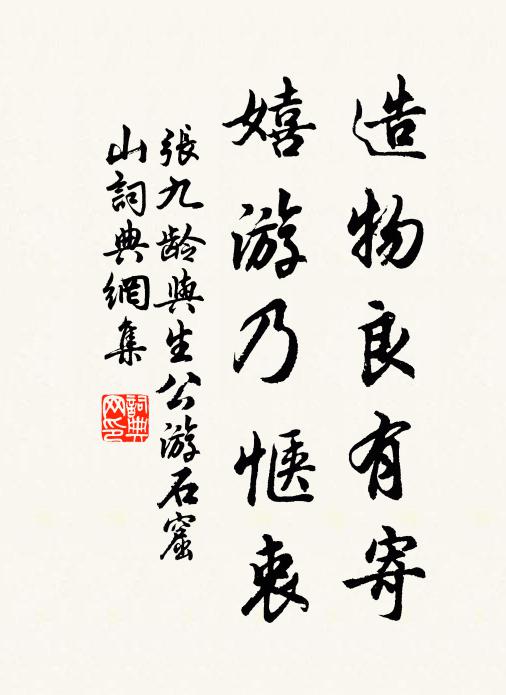 造物良有寄
嬉游乃惬衷
張九龄與生公游石窟
山詞典網集
詞典网印